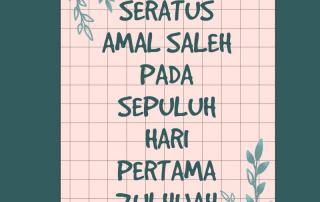 SERATUS
AMAL SALEH
PADA
SEPULUH
HARI
PERTAMA
ZULHIJAH